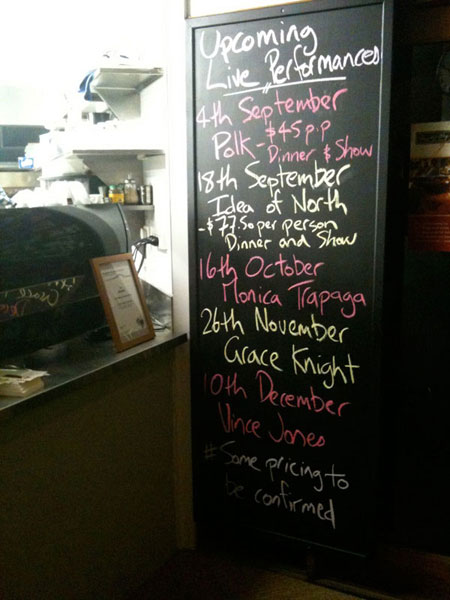 Upcoming
Live Performances
4th September
Polk - $45 p.p
Dinner & Show
18th September
Idea of North
- $77.50 per person
Dinner and Show
16th October
Monica Trapaga
26th November
Grace Knight
10th December
Vince Jones
# Some pricing to
be confirmed